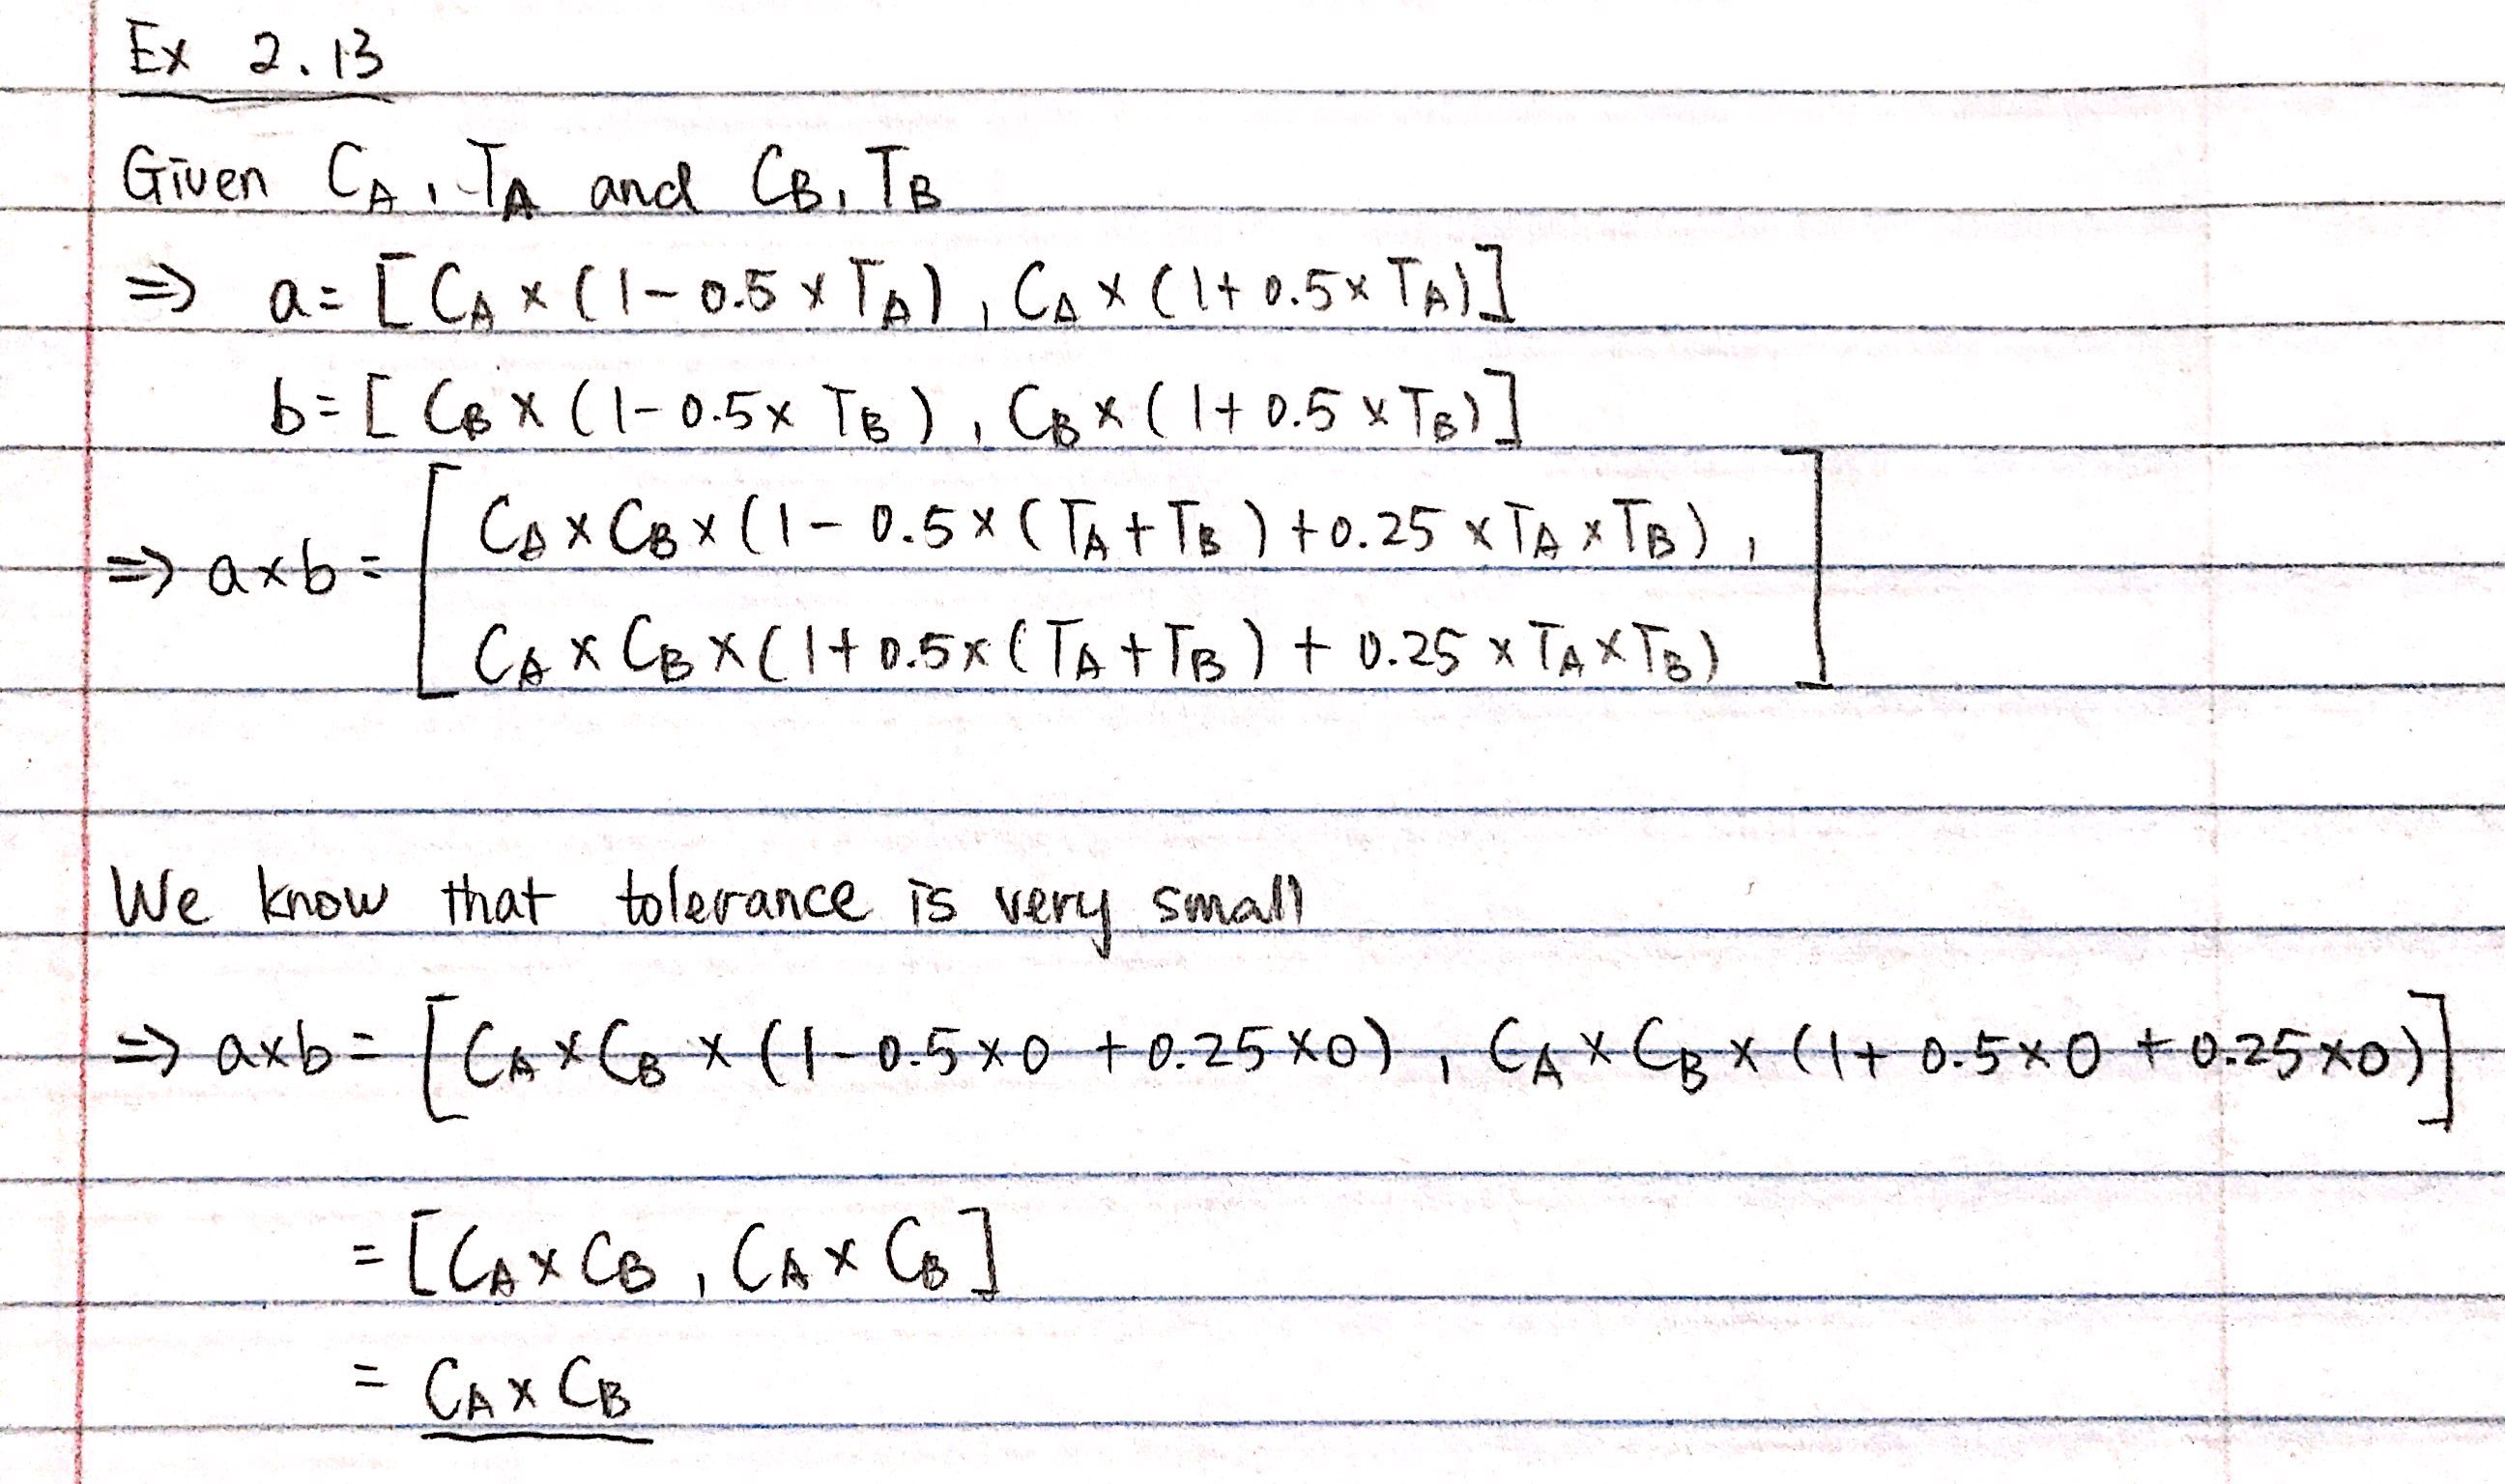 Ex 2.13
Given C_A, T_A and C_B, T_B
⇒ a = [C_A × (1 - 0.5 × T_A), C_A × (1 + 0.5 × T_A)]
b = [C_B × (1 - 0.5 × T_B), C_B × (1 + 0.5 × T_B)]
⇒ a × b = [C_A × C_B × (1 - 0.5 × (T_A + T_B) + 0.25 × T_A × T_B),
C_A × C_B × (1 + 0.5 × (T_A + T_B) + 0.25 × T_A × T_B)]
We know that tolerance is very small
⇒ a × b = [C_A × C_B × (1 - 0.5 × 0 + 0.25 × 0), C_A × C_B × (1 + 0.5 × 0 + 0.25 × 0)]
= [C_A × C_B, C_A × C_B]
= C_A × C_B